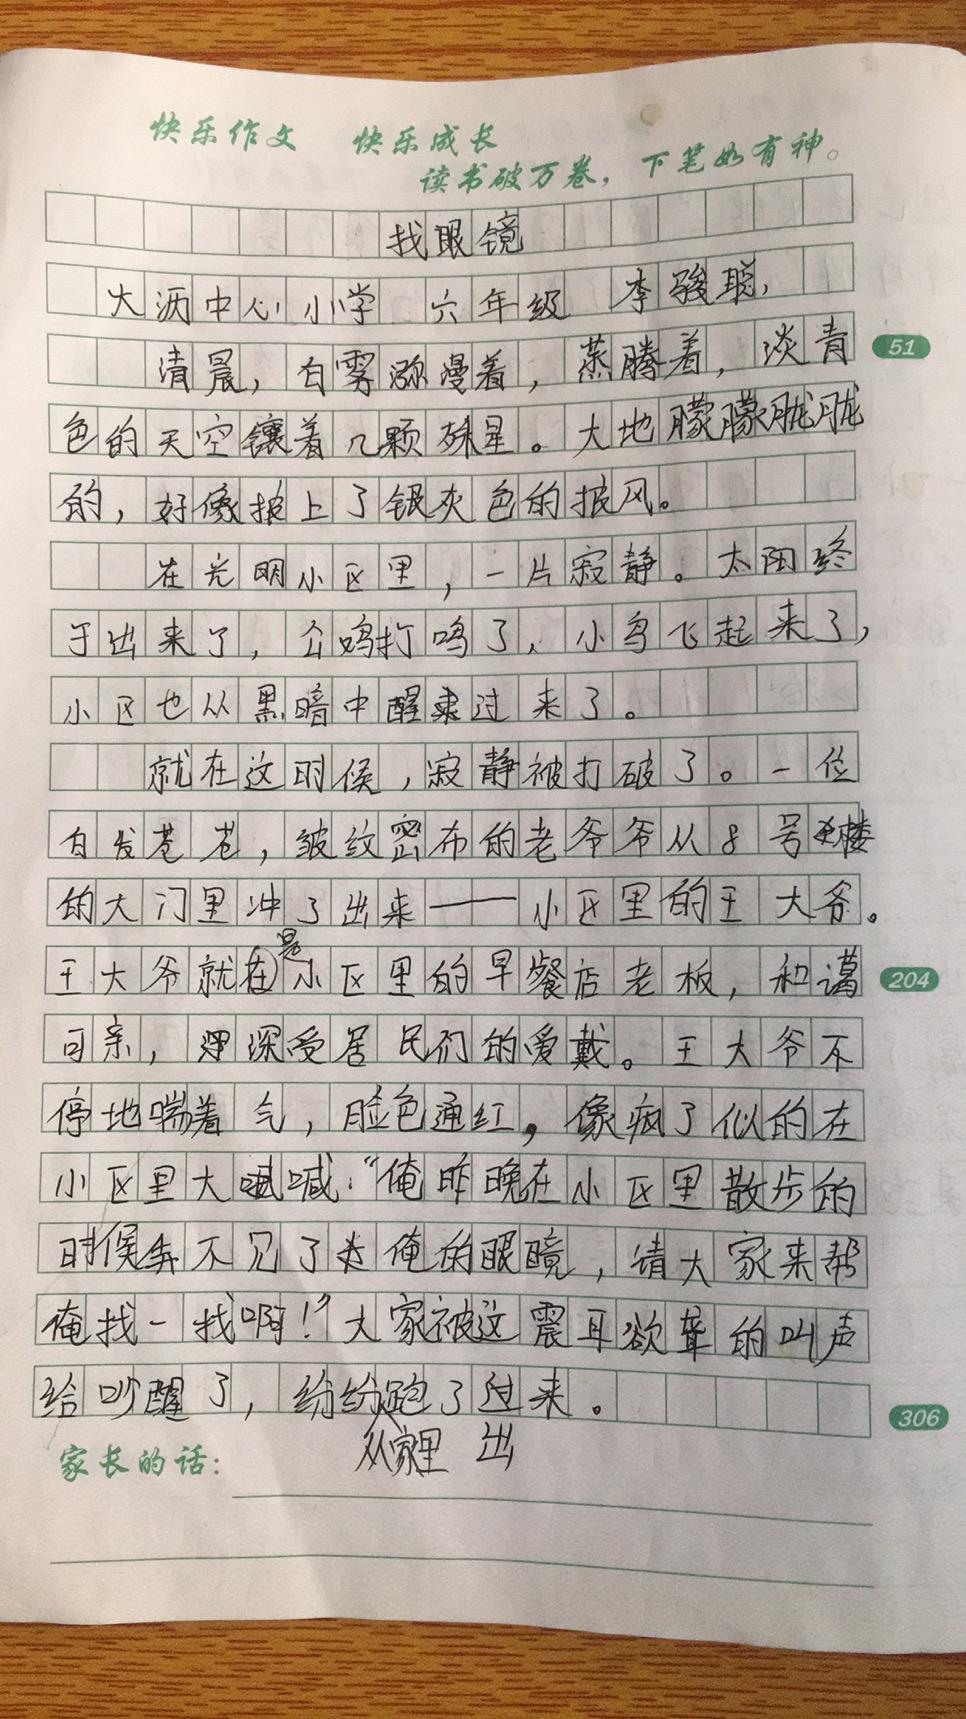 快乐作文 快乐成长
读书破万卷，下笔如有神。
找眼镜
大沥中心小学 六年级 李骏聪
清晨，白雾弥漫着，蒸腾着，淡青
色的天空镶着几颗殊星。大地朦朦胧胧
的，好像披上了银灰色的披风。
在光明小区里，一片寂静。太阳终
于出来了，公鸡打鸣了、小鸟飞起来了，
小区也从黑暗中醒过来了。
就在这时候，寂静被打破了。一位
白发苍苍，皱纹密布的老爷爷从8号楼
的大门里冲了出来——小区里的王大爷。
王大爷就是小区里的早餐店老板，和谒
可亲，深受居民们的爱戴。王大爷不
停地喘着气，脸色通红，像疯了似的在
小区里大喊：“俺昨晚在小区里散步的
时侯弄不见了俺的眼镜，请大家来帮
俺找一找啊！”大家被这震耳欲聋的叫声
给吵醒了，纷纷从家里跑了出来。
家长的话：
51
204
306